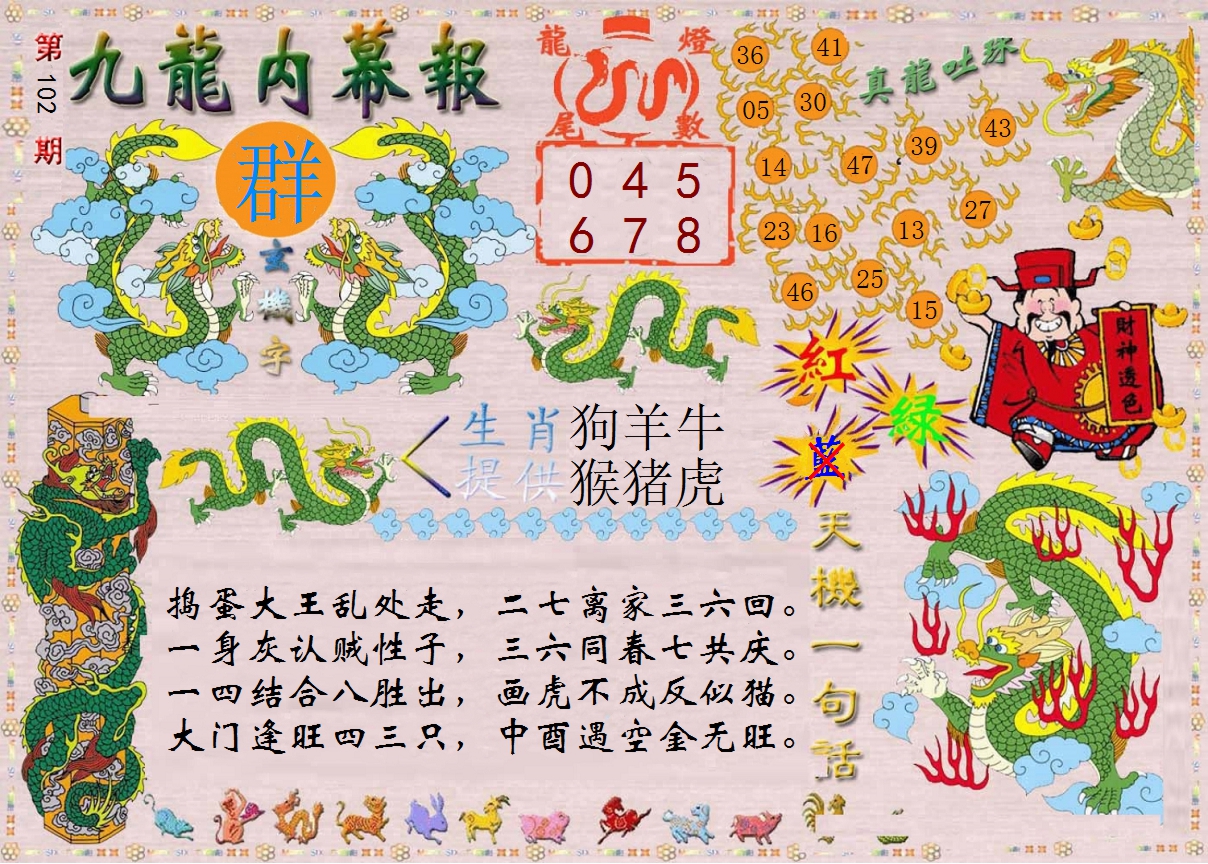 第102期
九龍内幕報
群
玄機字
龍燈尾數
0 4 5
6 7 8
真龍吐珠
36 41
05 30
14 47 39 43
23 16 13 27
46 25 15
財神透色
紅
綠
藍
生肖提供
狗羊牛
猴猪虎
天機一句話
捣蛋大王乱处走，二七离家三六回。
一身灰认贼性子，三六同春七共庆。
一四结合八胜出，画虎不成反似猫。
大门逢旺四三只，中酉遇空金无旺。